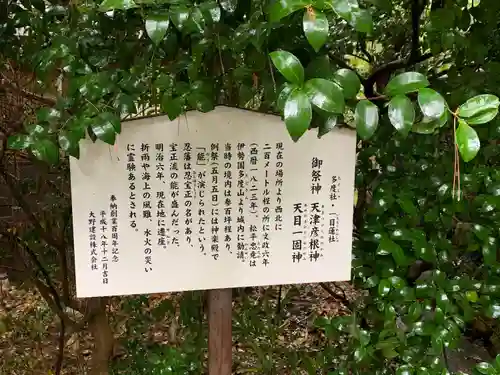 多度社・一目連社
御祭神 天津彦根神
天目一箇神
現在の場所より西北に
二百メートル程の所に文政六年
(西暦一八二三年)、松平忠堯が
伊勢国多度山より城内に勧請、
当時の境内は参百坪程あり
例祭(五月五日)には神楽殿で
「能」が演じられたという。
忍藩に忍宝正の名があり、
宝正流の能が盛んだった。
明治六年、現在地に遷座。
祈雨や海上の風難、水火の災い
に霊験あるとされる。
奉納創業百周年記念
平成十八年十二月吉日
大野建設株式会社